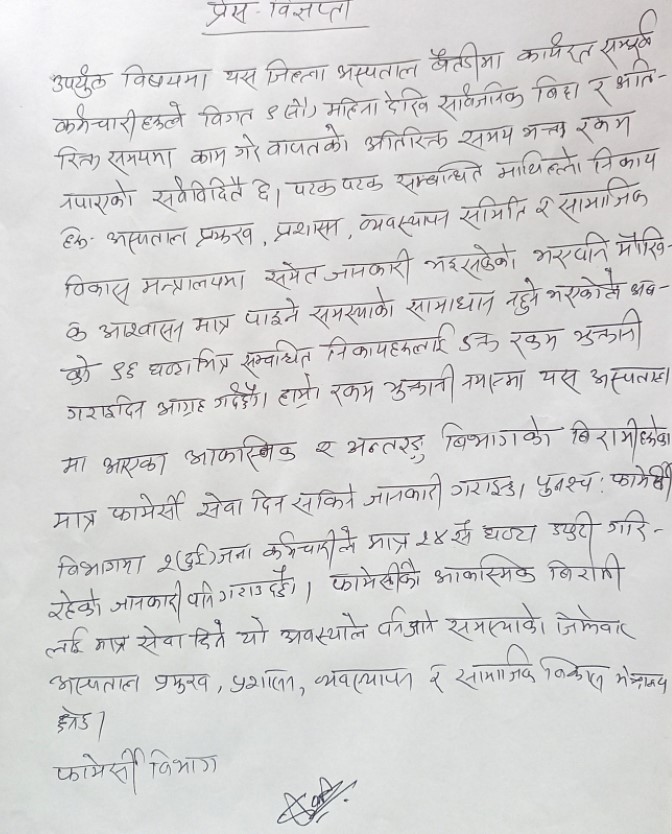 प्रेस - विज्ञप्ती
उपर्युक्त विषयमा यस जिल्ला अस्पताल बैतडीमा कार्यरत सम्पूर्ण
कर्मचारीहरूले विगत ९ (नौ) महिना देखि सार्वजनिक बिदा र अति-
रिक्त समयमा काम गरे वापतको अतिरिक्त समय भत्ता रकम
नपाएको सर्वविदितै छ। पटक पटक सम्बन्धित माथिल्लो निकाय
अस्पताल प्रमुख, प्रशासन, व्यवस्थापन समिति र सामाजिक
विकास मन्त्रालयमा समेत जानकारी भइसकेको भएपनि मौखि-
क आश्वासन मात्र पाइने समस्याको सामाधान नहुने भएकोले अब-
को ९६ घण्टा भित्र सम्बन्धित निकायहरूलाई उक्त रकम भुक्तानी
गराइदिन आग्रह गर्दछौं। हाम्रो रकम भुक्तानी नभएमा यस अस्पताल
मा आएका आकस्मिक र अन्तरङ्ग बिभागको बिरामीहरूका
मात्र फार्मेसी सेवा दिन सकिने जानकारी गराइन्छ। पुनश्च: फार्मेसी
बिभागमा २(दुई) जना कर्मचारीले मात्र २४ सै घण्टा ड्युटी गरि-
रहेको जानकारी पनि गराउदछौं। फार्मेसीको आकस्मिक बिरामी
लाई मात्र सेवा दिने यो अवस्थाले पर्नआने समस्याको जिम्मेवार
अस्पताल प्रमुख, प्रशासन, व्यवस्थापन र सामाजिक विकास मन्त्रालय
हुनेछ।
फार्मेसी विभाग